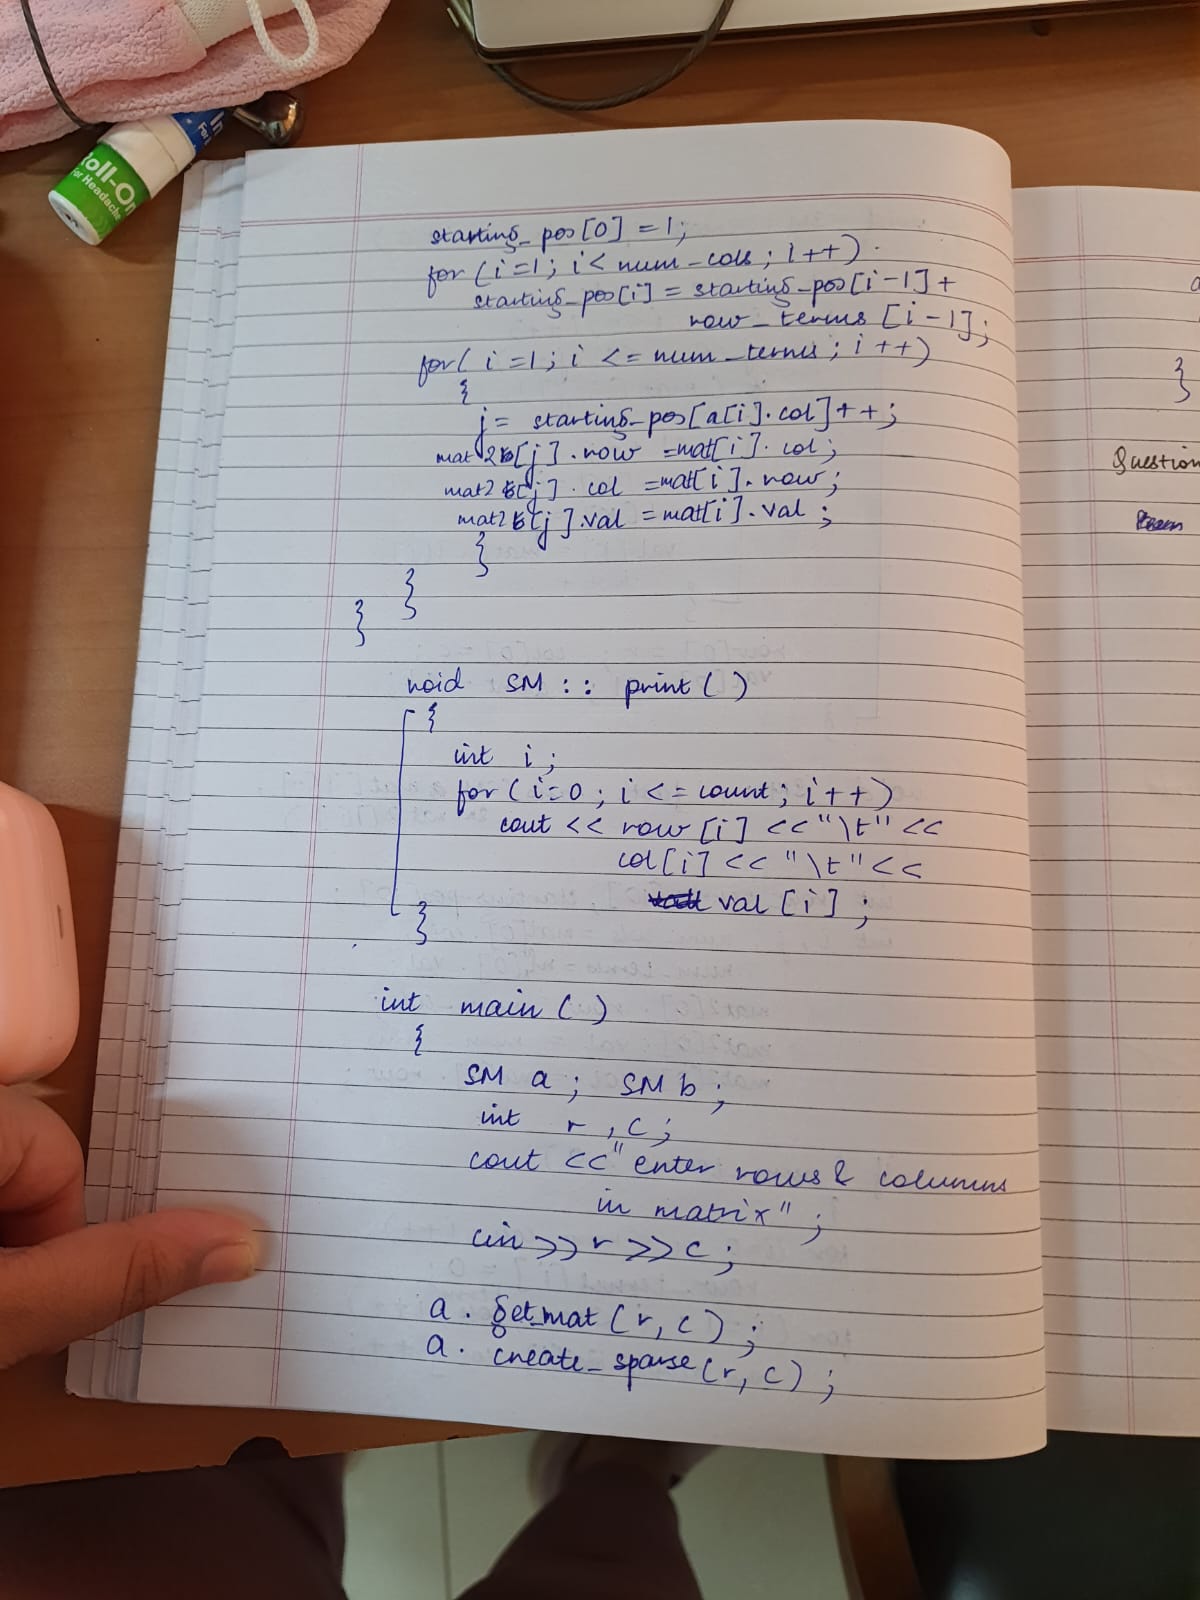 In
For
Roll-On
For Headache
starting_pos[0] = 1;
for (i=1; i< num_cols; i++)
starting_pos[i] = starting_pos[i-1] +
row_terms [i-1];
for( i=1; i <= num_terms; i++)
{
j= starting_pos[a[i].col]++;
mat2[j].row =mat[i].col;
mat2[j].col =mat[i].row;
mat2[j].val =mat[i].val;
}
}
}
void SM :: print()
{
int i;
for(i=0; i<=count; i++)
cout << row[i] <<"\t"<<
col[i] << "\t"<<
val [i];
}
int main()
{
SM a; SM b;
int r,c;
cout <<"enter rows & columns
in matrix";
cin>>r>>c;
a.get_mat(r,c);
a.create_sparse(r,c);
a
}
Question